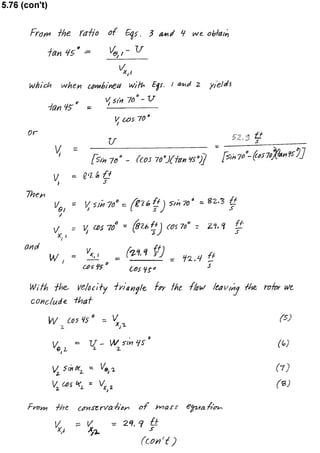 5.76 (con't)
From the ratio of Eqs. 3 and 4 we obtain
tan 45° = (V_θ,1 - U) / V_x,1
which when combined with Eqs. 1 and 2 yields
tan 45° = (V_1 sin 70° - U) / (V_1 cos 70°)
or
V_1 = U / [sin 70° - (cos 70°)(tan 45°)] = 52.3 ft/s / [sin 70° - (cos 70°)(tan 45°)]
V_1 = 92.6 ft/s
Then
V_θ1 = V_1 sin 70° = (87.6 ft/s) sin 70° = 82.3 ft/s
V_x,1 = V_1 cos 70° = (87.6 ft/s) cos 70° = 29.9 ft/s
and
W_1 = V_x,1 / cos 45° = (29.9 ft/s) / cos 45° = 42.4 ft/s
With the velocity triangle for the flow leaving the rotor we
conclude that
W_2 cos 45° = V_x,2 (5)
V_θ,2 = U_2 - W_2 sin 45° (6)
V_2 sin α_2 = V_θ,2 (7)
V_2 cos α_2 = V_x,2 (8)
From the conservation of mass equation
V_x,1 = V_x,2 = 29.9 ft/s
(con't)